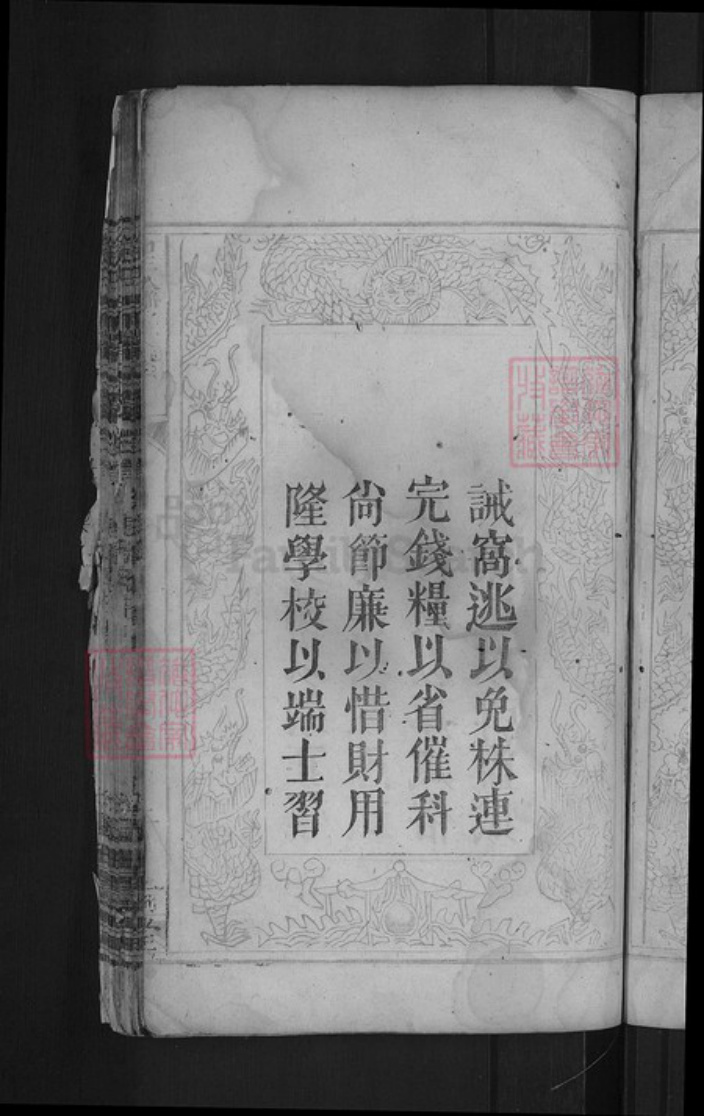 誡窩逃以免株連
完錢糧以省催科
尙節廉以惜財用
隆學校以端士習
FamilySearch